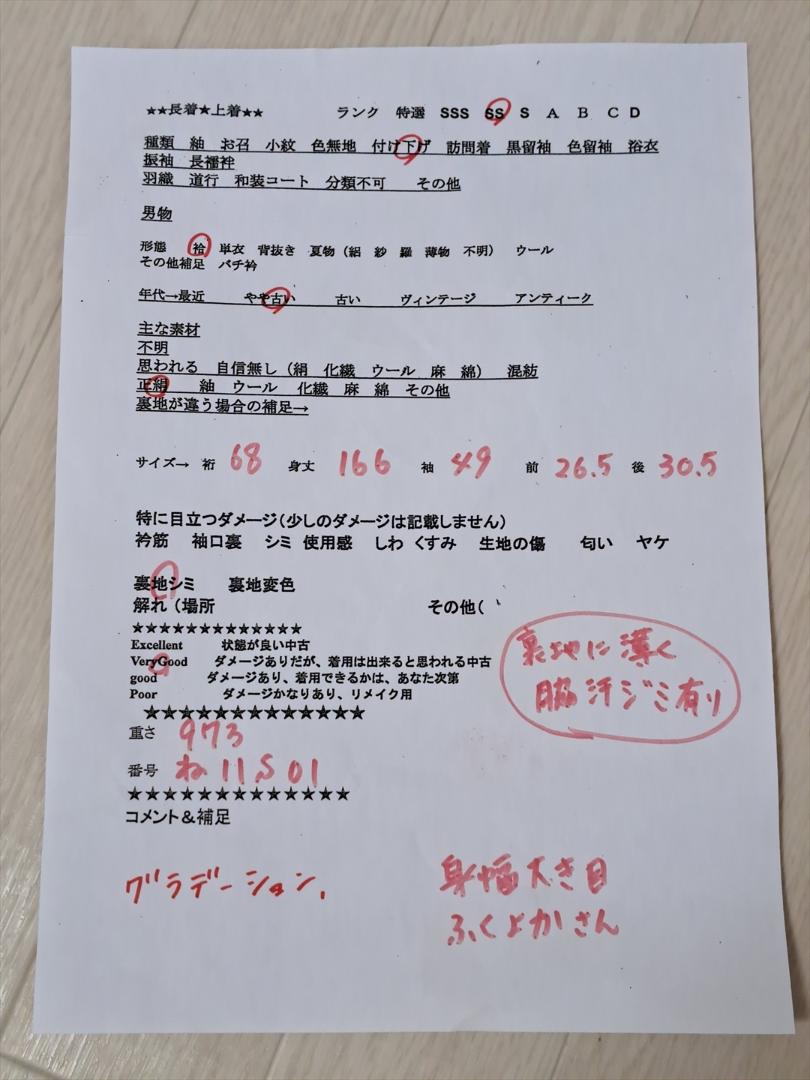 ★★長着★上着★★　ランク　特選　SSS　SS　S　A　B　C　D
種類　紬　お召　小紋　色無地　付け下げ　訪問着　黒留袖　色留袖　浴衣
振袖　長襦袢
羽織　道行　和装コート　分類不可　その他
男物
形態　袷　単衣　背抜き　夏物（絽　紗　羅　薄物　不明）　ウール
その他補足　バチ衿
年代→最近　やや古い　古い　ヴィンテージ　アンティーク
主な素材
不明
思われる　自信無し（絹　化繊　ウール　麻　綿）　混紡
正絹　紬　ウール　化繊　麻　綿　その他
裏地が違う場合の補足→
サイズ→　裄　68　身丈　166　袖　49　前　26.5　後　30.5
特に目立つダメージ（少しのダメージは記載しません）
衿筋　袖口裏　シミ　使用感　しわ　くすみ　生地の傷　匂い　ヤケ
裏地シミ　裏地変色
解れ（場所　その他（
★★★★★★★★★★★★★
Excellent　状態が良い中古
VeryGood　ダメージありだが、着用は出来ると思われる中古
good　ダメージあり、着用できるかは、あなた次第
Poor　ダメージかなりあり、リメイク用
裏地に薄く
脇汗ジミ有り
★★★★★★★★★★★★★
重さ　973
番号　ね11S01
★★★★★★★★★★★★★
コメント＆補足
グラデーション、
身幅大き目
ふくよかさん